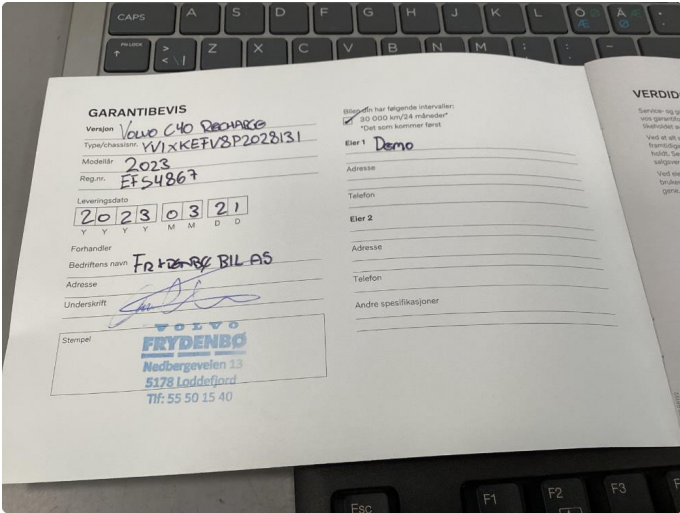 CAPS A S D F G H J K L Ö Ø Æ Ä Ø Æ
> < \ | Z X C V B N M ; , : . _ -
GARANTIBEVIS
Versjon VOLVO C40 RECHARGE
Type/chassisnr. YV1XKEFV8P2028131
Modellår 2023
Reg.nr. EF54867
Leveringsdato
2023 03 21
Y Y Y Y M M D D
Forhandler
Bedriftens navn FRYDENBØ BIL AS
Adresse
Underskrift
Stempel
VOLVO
FRYDENBØ
Nedbergeveien 13
5178 Loddefjord
Tlf: 55 50 15 40
Bilen din har følgende intervaller:
30 000 km/24 måneder*
*Det som kommer først
Eier 1 Demo
Adresse
Telefon
Eier 2
Adresse
Telefon
Andre spesifikasjoner
VERDID
Service- og g
vos garantifo
likeholdet a
Ved at alt v
framtidige
holdt. Se
salgsver
Ved sie
bruke
gene.
Esc F1 F2 F3 F